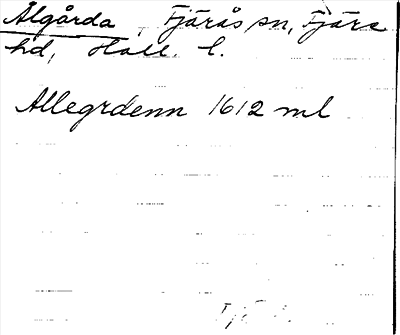 Älgårda, Fjärås sn, Fjäre
hd, Hall. l.
Allegrdenn 1612 ml